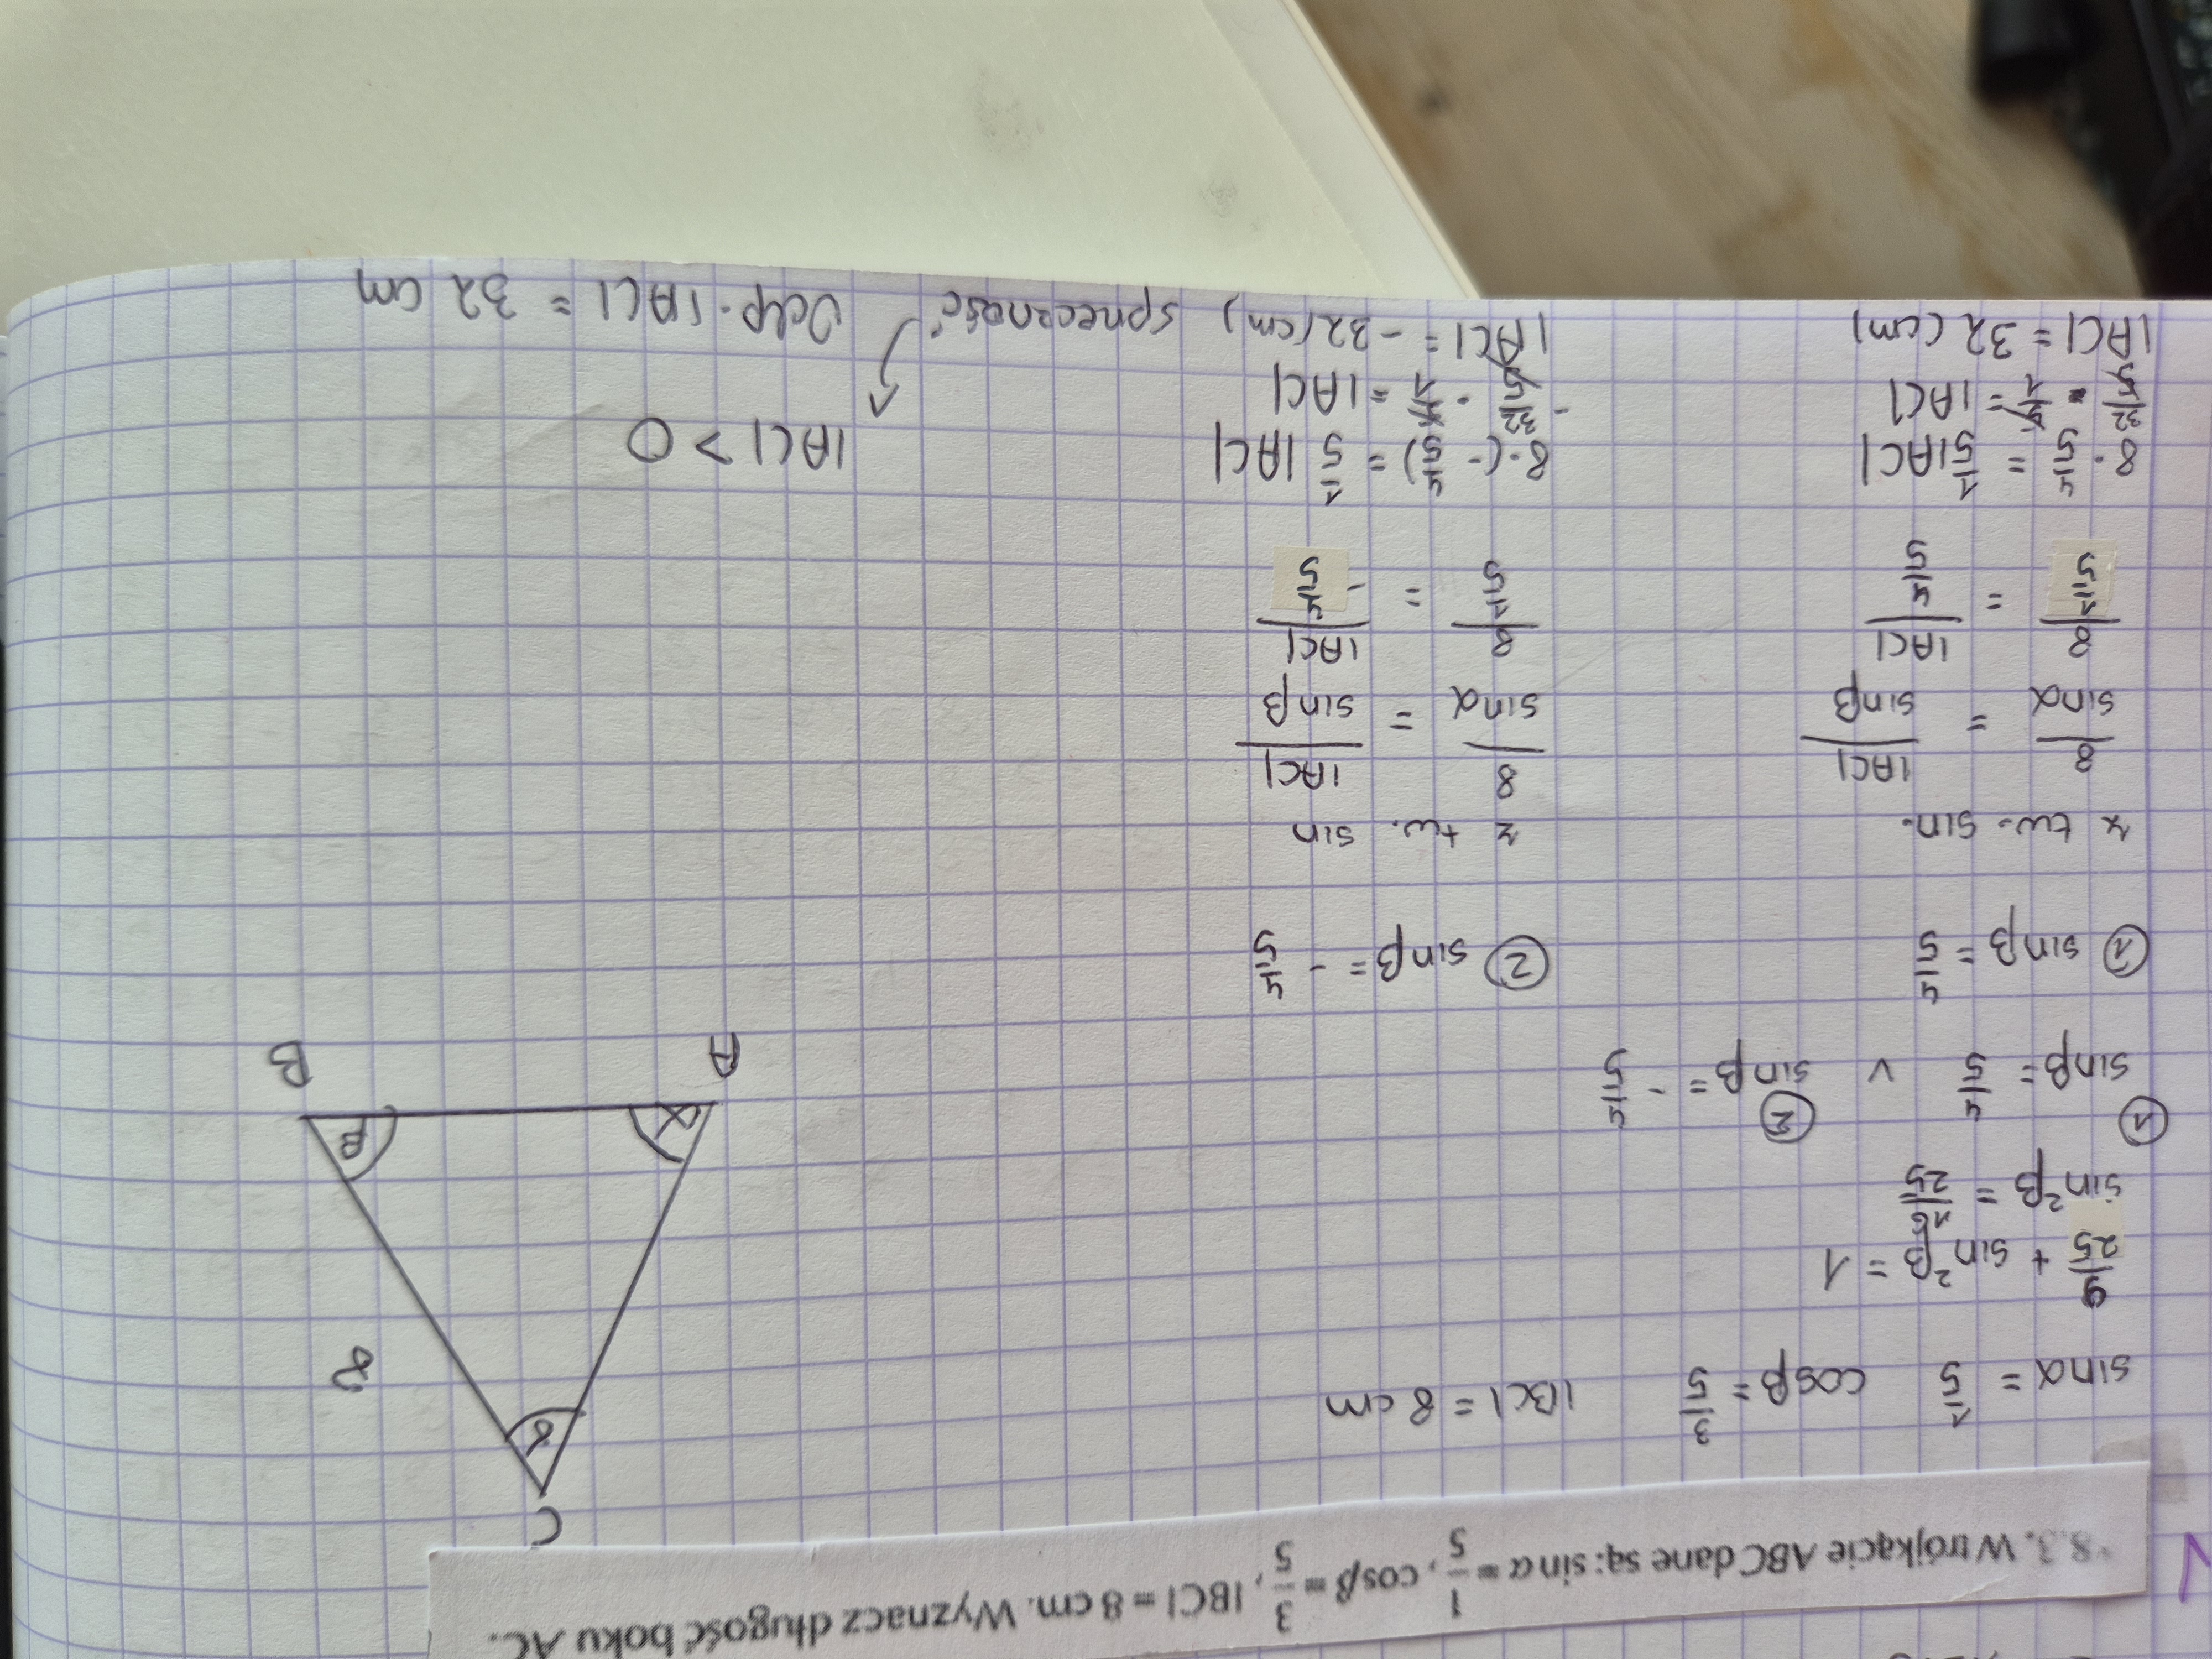 8.3. W trójkącie ABC dane są: sin α = 1/5, cos β = 3/5, |BC| = 8 cm. Wyznacz długość boku AC.
sinα = 1/5 cosβ = 3/5 |BC| = 8 cm
C
γ
8
α
β
A
B
9/25 + sin²β = 1
sin²β = 16/25
① ②
sinβ = 4/5 v sinβ = - 4/5
① sinβ = 4/5
② sinβ = - 4/5
z tw. sin.
8/sinα = |AC|/sinβ
8/(1/5) = |AC|/(4/5)
8 · 4/5 = 1/5 |AC|
32/5 · 5/1 = |AC|
|AC| = 32 (cm)
z tw. sin
8/sinα = |AC|/sinβ
8/(1/5) = |AC|/(- 4/5)
8 · (- 4/5) = 1/5 |AC|
- 32/5 · 5/1 = |AC|
|AC| = - 32 (cm) sprzeczność
|AC| > 0
Odp. |AC| = 32 cm